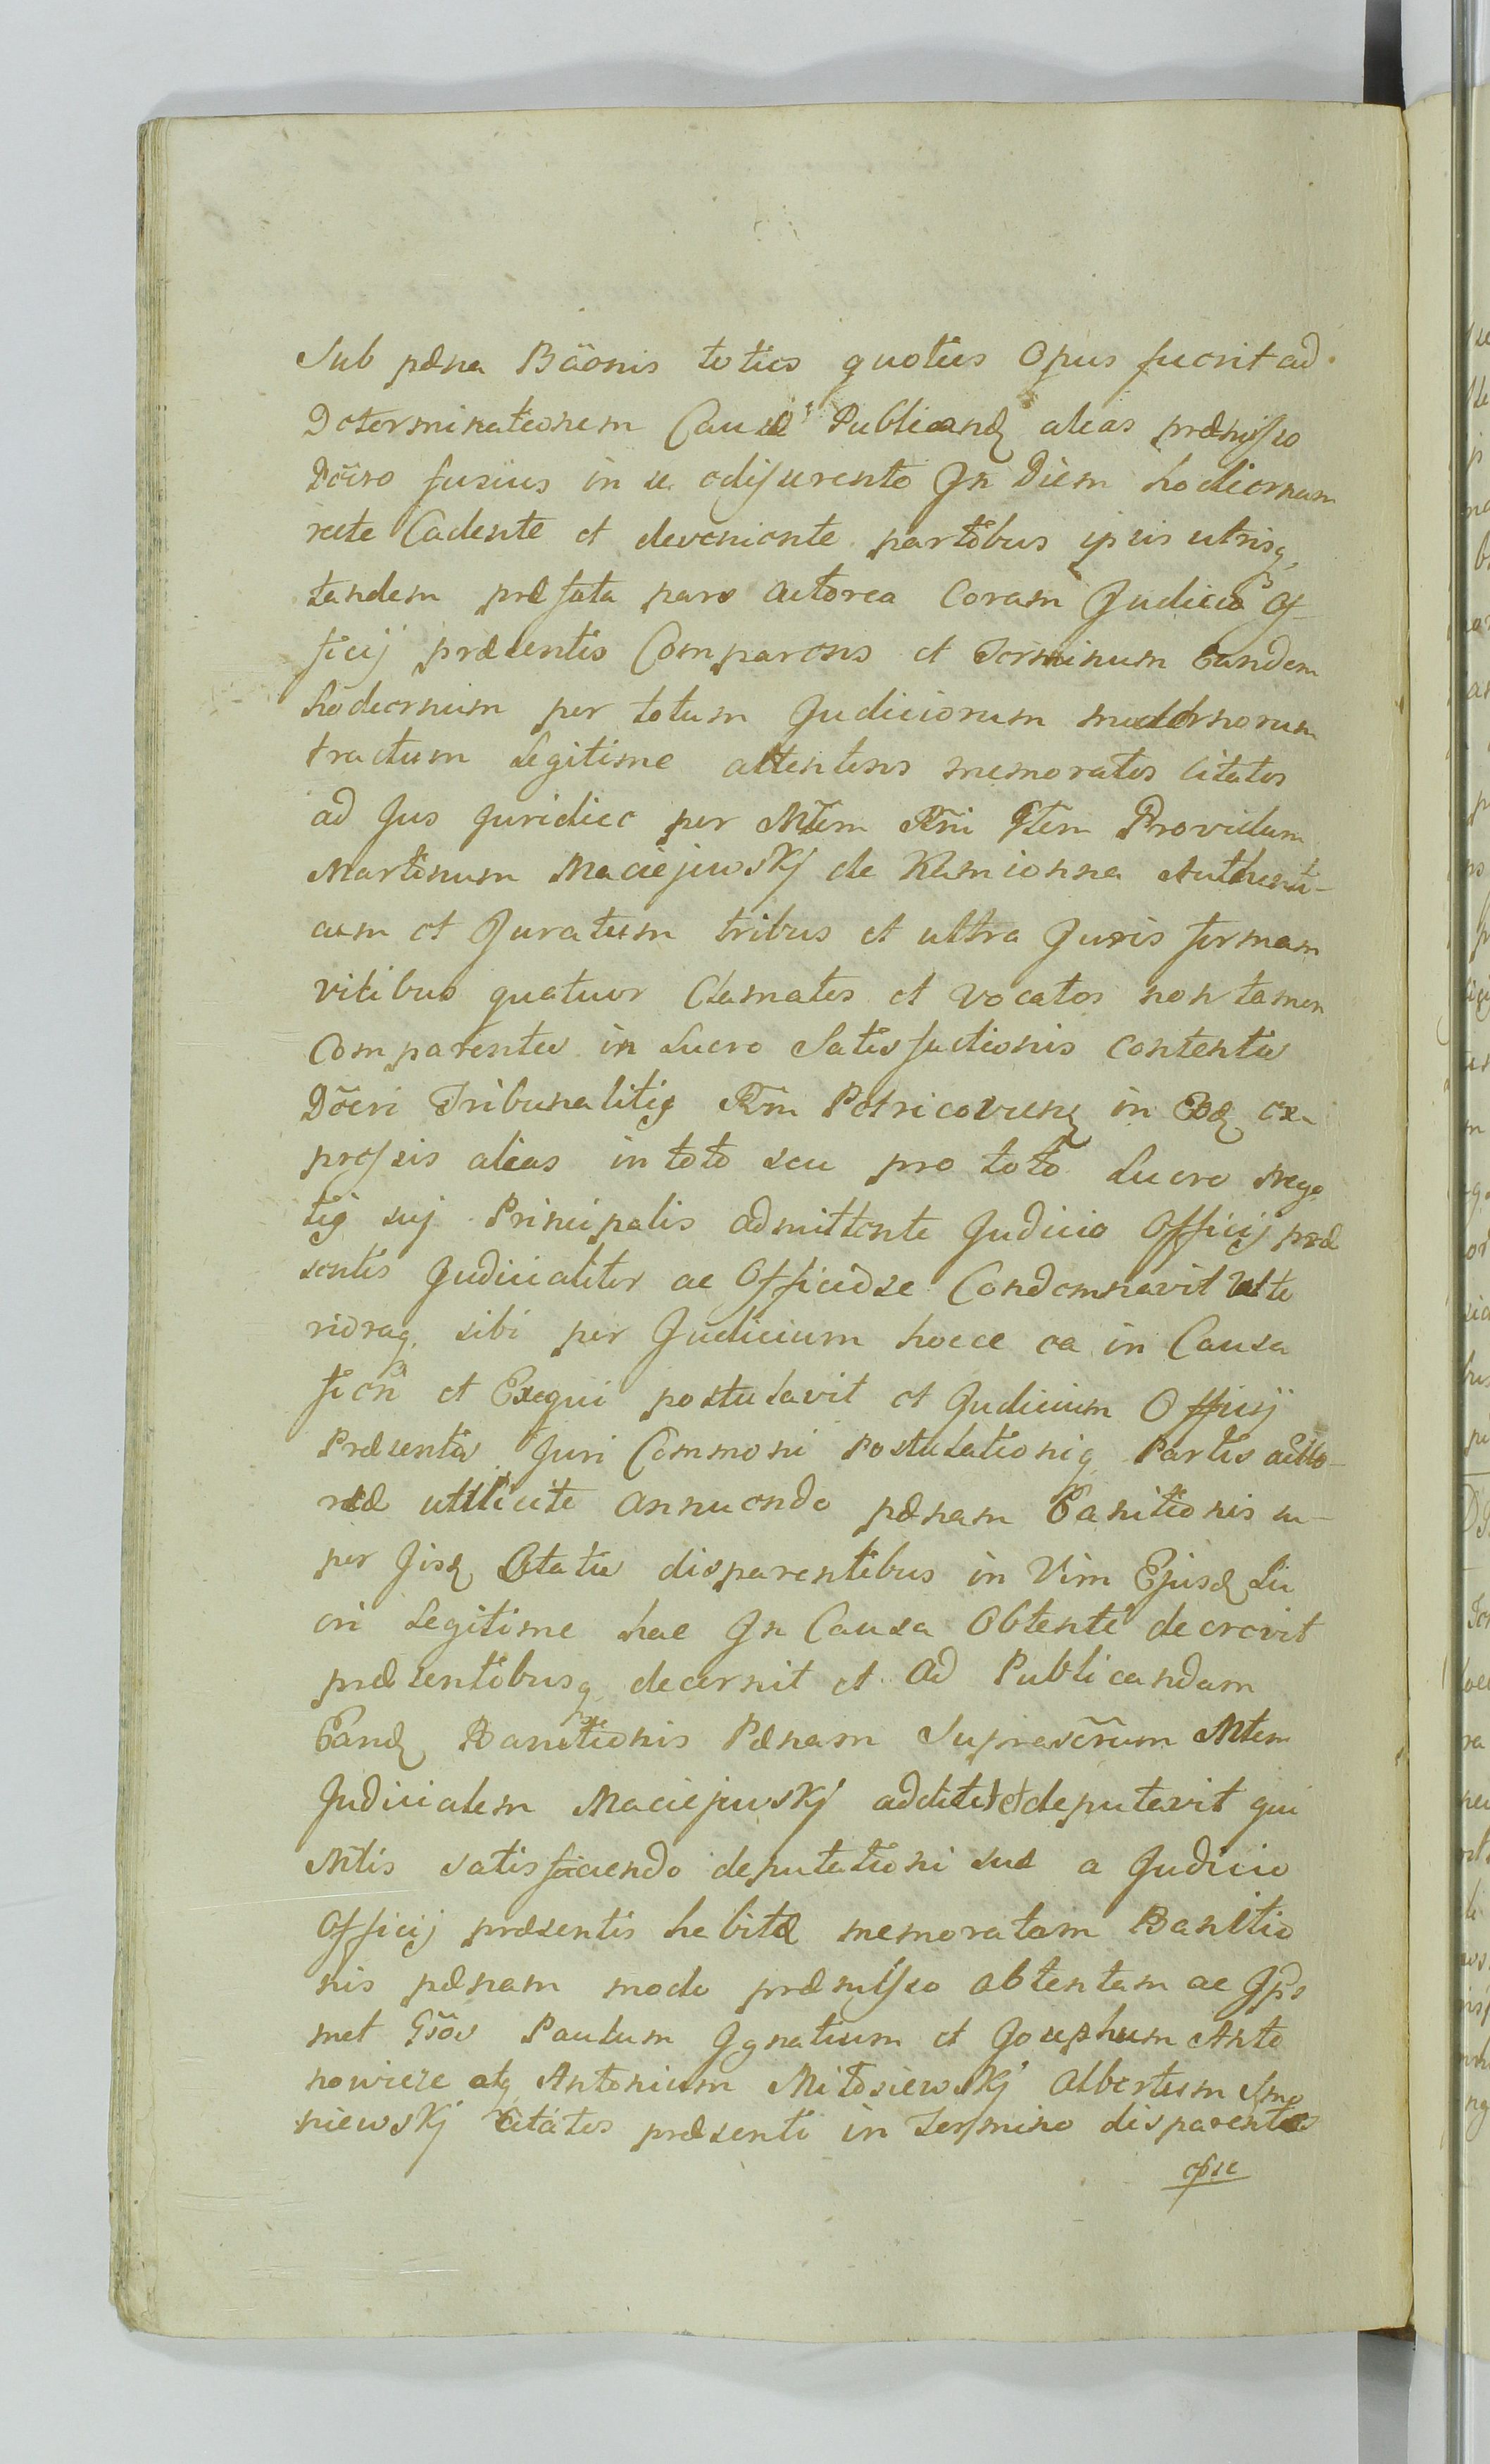 Sub pæna Bãonis toties quoties Opus fuerit ad
Determinationem Causæ Publicand alias præmisso
Dõcro fusius in se odisserente In Diem hodiernam
recte Cadente et deveniente partibus ipsis utrisq,
tandem præfata pars actorea Coram Judicio Of-
ficij præsentis Comparens et Terminum Eundem
hodiernum per totum Judiciorum modernorum
tractum Legitime attentens memoratos Citatos
ad Jus Juridice per Mtem Rñi Gtem Providum
Martinum Maciejewskj de Kamionna Authenti-
cum et Juratum tribus et ultra Juris formam
vicibus quatuor Clamatos et vocatos non tamen
Comparentes in Lucro Satisfactionis contentis
Dõcri Tribunalitig Rñi Petricovien in Eod ex-
pressis alias in toto seu pro toto Lucro nego
tig suj Principalis admittente Judicio Officij præ
sentis Judicialiter ac Officiose Condemnavit Ulte
riõraq, sibi per Judicium hocce ea in Causa
fieri et Exequi postulavit et Judicium Officij
Præsentis Juri Communi Postulationiq, Partis acto-
reæ utilicite annuendo pænam Banitionis su-
per Jisd Citatis disparentibus in Vim Ejusd Lu
cri Legitime hac In Causa Obtenti decrevit
præsentibusq, decernit et ad Publicandam
Eand Banitionis Pænam Suprascrum Mtem
Judicialem Maciejewskj addidit et deputavit qui
Mtis satisfaciendo deputationi suæ a Judicio
Officij præsentis habitæ memoratam Banitio
nis pænam modo præmisso obtentam ac Jps
met Gsõs Paulum Ignatium et Josephum Anto
nowicze atq Antonium Miłosiewskj Albertum Smo
niewskj Citatos præsenti in Termino disparentes
esse